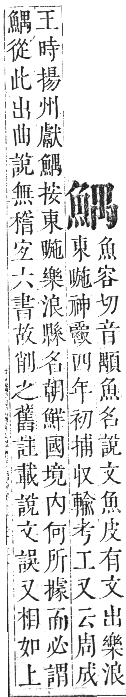 鰅
魚容切音顒魚名說文魚皮有文出樂浪
東暆神爵四年初捕收輸考工又云周成
王時揚州獻鰅按東暆樂浪縣名朝鮮國境內何所據而必謂
鰅從此出曲說無稽宐六書故削之舊註載說文誤又相如上